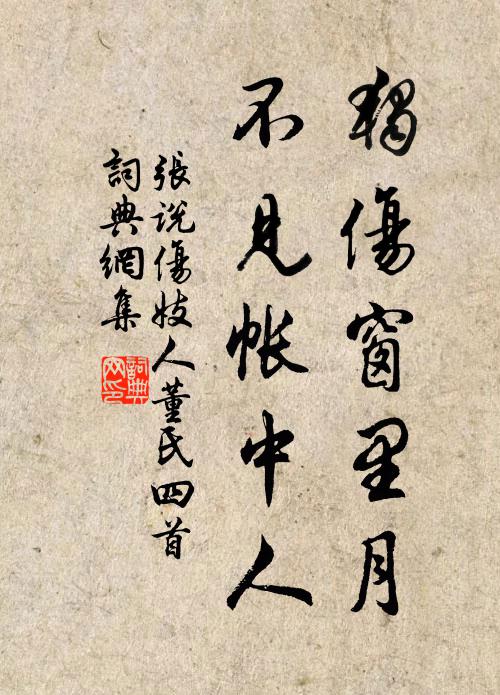 獨傷窗里月
不見帳中人
張說傷妓人董氏四首
詞典網集
詞典網印